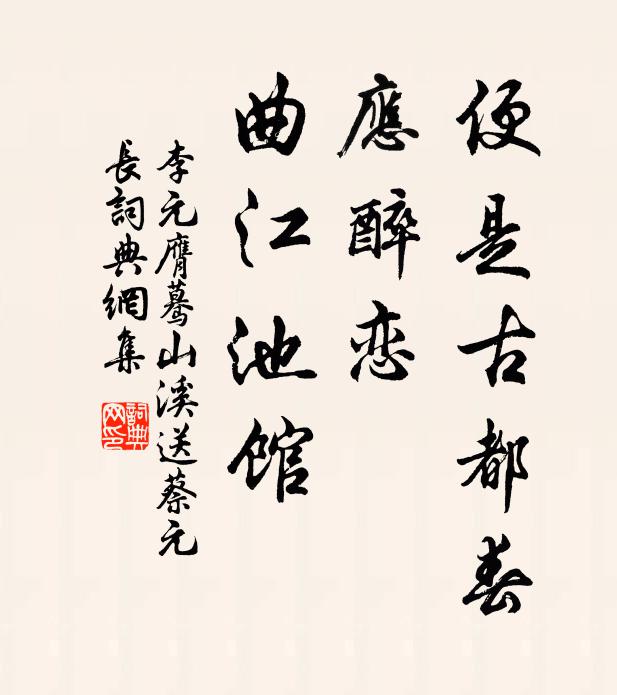 便是古都春
應醉恋
曲江池馆
李元膺蓦山溪送蔡元
長詞典網集
詞典
网印